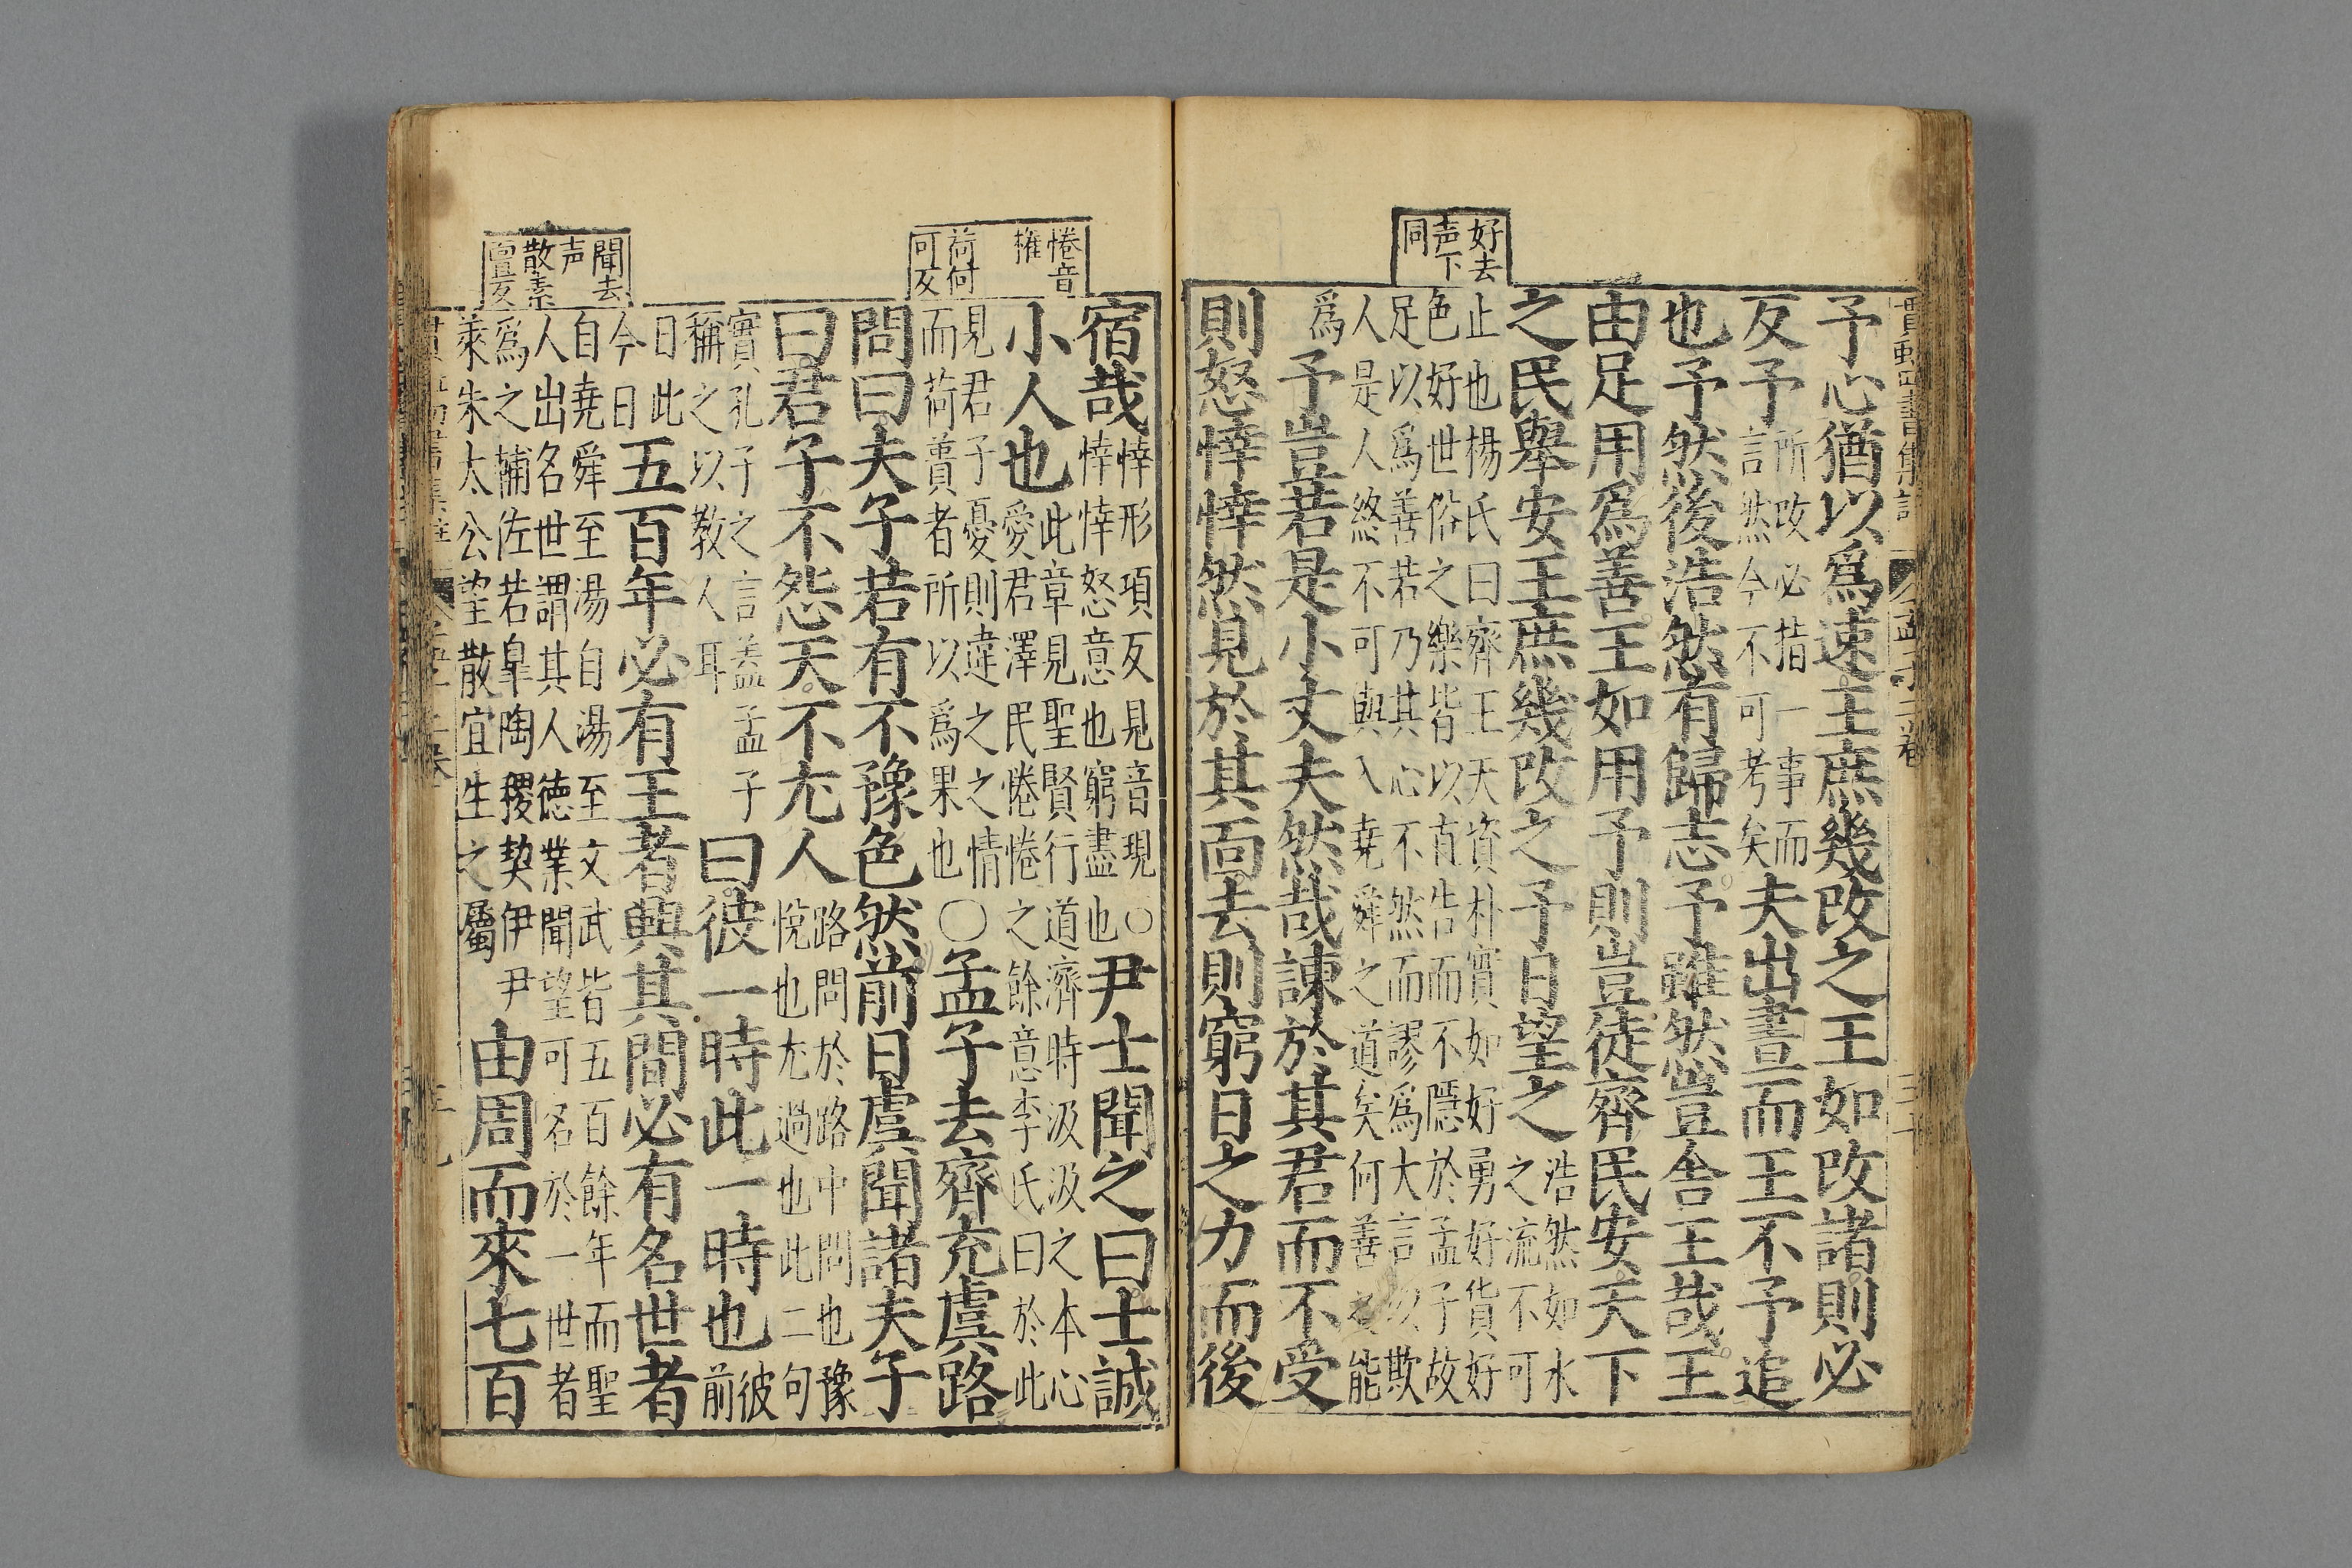 好去
声下
同
予心猶以爲速王庶幾改之王如改諸則必
反予
所改必指一事而
言然今不可考矣
夫出晝而王不予追
也予然後浩然有歸志予雖然豈舍王哉王
由足用爲善王如用予則豈徒齊民安天下
之民舉安王庶幾改之予日望之
浩然如水
之流不可
止也楊氏曰齊王天資朴實如好勇好貨好
色好世俗之樂皆以直告而不隱於孟子故
足以爲善若乃其心不然而謬爲大言以欺
人是人終不可與入堯舜之道矣何善之能
爲
予豈若是小丈夫然哉諫於其君而不受
則怒悻悻然見於其面去則窮日之力而後
惓音
權
荷何
可反
聞去
声
散素
亶反
宿哉
悻形項反見音現○
悻悻怒意也窮盡也
尹士聞之曰士誠
小人也
此章見聖賢行道濟時汲汲之本心
愛君澤民惓惓之餘意李氏曰於此
見君子憂則違之之情
而荷蕢者所以爲果也
○孟子去齊充虞路
問曰夫子若有不豫色然前日虞聞諸夫子
曰君子不怨天不尤人
路問於路中問也豫
悅也尤過也此二句
實孔子之言盖孟子
稱之以教人耳
曰彼一時此一時也
彼
前
日此
今日
五百年必有王者興其間必有名世者
自堯舜至湯自湯至文武皆五百餘年而聖
人出名世謂其人德業聞望可名於一世者
爲之輔佐若皐陶稷契伊尹
萊朱太公望散宜生之屬
由周而來七百